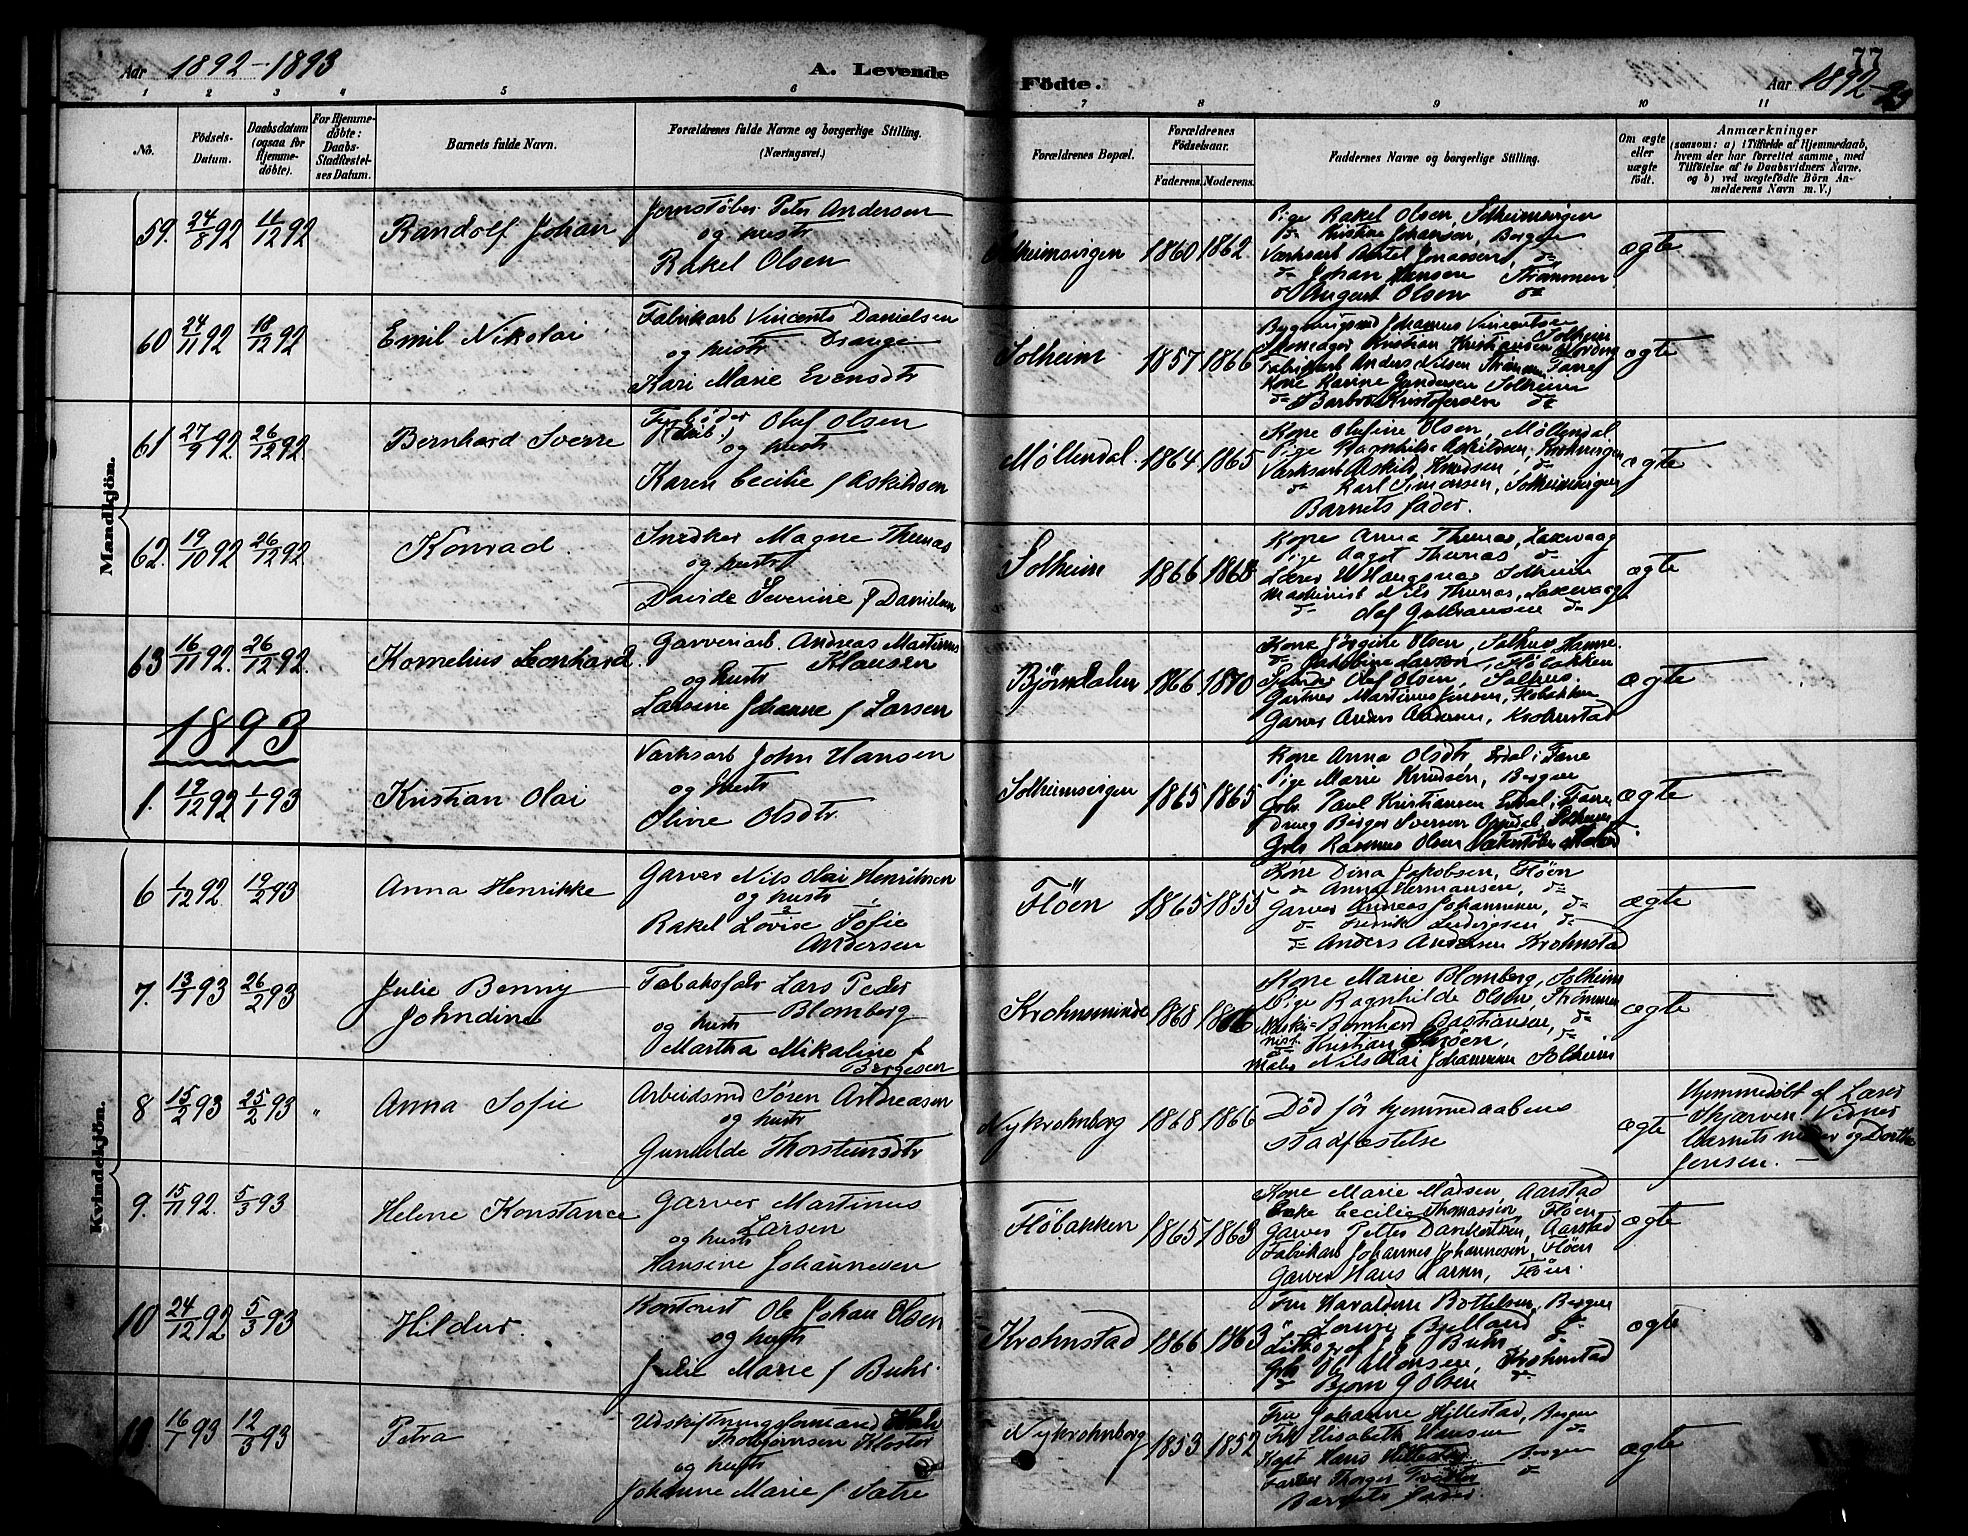 Aar 1892-1893
A. Levende Födte.
77
Aar 1892-93
1 2 3 4 5 6 7 8 9 10 11
No.
Födsels-Datum.
Daabsdatum (ogsaa for Hjemmedöbte).
For Hjemmedöbte: Daabs-Stadfæstelses Datum.
Barnets fulde Navn.
Forældrenes fulde Navne og borgerlige Stilling. (Næringsvei.)
Forældrenes Bopæl.
Forældrenes Födselsaar.
Faderens. Moderens.
Faddernes Navne og borgerlige Stilling.
Om ægte eller uægte födt.
Anmærkninger
(saasom: a) i Tilfælde af Hjemmedaab, hvem der har forrettet samme, med Tilföielse af to Daabsvidners Navne, og b) ved uægtefödte Börn Anmelderens Navn m. V.)
Mandkjön.
59. 24/8 92 11/12 92 Randolf Johan
Jernstøber Peter Andersen
og hustr
Rakel Olsen
Solheimsvigen 1860 1862
Pige Rakel Olsen, Solheimsvigen
do Kristine Johansen, Bergen
Værksarb Bertel Jonassen, do
do Johan Hansen Strømmen
do August Olsen do
ægte
60 24/11 92 18/12 92 Emil Nikolai
Fabrikarb Vincents Danielsen
og hustr Drange
Kari Marie Evensdtr
Solheim 1857 1866
Kone Karine Gundersen Solheim
do Barbro Kristofersen do
ægte
61 27/9 92 26/12 92 Bernhard Sverre
Fyrbøder Oluf Olsen
og hustr
Karen Cecilie f Askildsen
Møllendal. 1864 1865
Kone Olufine Olsen, Møllendal
Pige Ragnhilde Askildsen,
Værksarb Askild Knudsen, do
do Karl Simonsen, Solheimsvigen
Barnets fader.
ægte
62. 19/10 92 26/12 92 Konrad.
Snedker Magne Thunæs
og hustr
Davide Severine f Danielsen
Solheim 1866 1868
Kone Anna Thunæs, Laxevaag
Pige Aagot Thunæs do
Lærer W Haugsnæs Solheim
Maskinist Nils Thunæs, Laxevaag
do Olaf Gulbransen do
ægte
63 16/11 92. 26/12 92. Kornelius Leonhard.
Garveriarb. Andreas Martinus
og hustr Klausen
Larsine Johanne f Larsen
Bjørndalen 1866 1870
Kone Jørgine Olsen, Solhus, Hamre.
do Jakobine Larsen, Fløbakken
Olaf Olsen, Solhus.
Gartner Martinus Jensen, Fløbakken
Garver Anders Andersen, Krohnstad
ægte
1893
1. 19/12 92 1/1 93 Kristian Olai
Værksarb John Hansen
og hustr
Oline Olsdtr
Solheimsvigen 1865 1865
Kone Anna Olsdtr, Erdal i Fane
Pige Marie Knudsen, Bergen
Gbr Paul Kristiansen Erdal, Fane
ægte
Kvindekjön.
6 1/12 92. 19/2 93 Anna Henrikke
Garver Nils Olai Henriksen
og hustr
Rakel Lovise Sofie
Andersen
Fløen 1865 1855
Kone Dina Jakobsen, Fløen
do Anna Hermansen, do
Garver Andreas Johannesen, do
do Fredrik Ludvigsen do
do Anders Andersen Krohnstad
ægte
7. 13/1 93 26/2 93 Julie Benny
Johndine
Tobaksfabr Lars Peder
og hustr Blomberg
Martha Mikaline f
Børgesen
Krohnsminde 1868
Kone Marie Blomberg, Solheim
Pige Ragnhilde Olsen, Strømmen
Maskinist Bernhard Bastiansen, do
Kristian Mjøen, do
Maler Nils Olai Johannesen Solheim
ægte
8 15/2 93 25/2 93 " Anna Sofie
Arbeidsmd Søren Andreasen
og hustr
Gunhilde Thorsteinsdtr
Nykrohnborg 1868 1866
Død før hjemmedaabens
stadfæstelse
ægte
Hjemmedøbt af Lærer
Skjærven. Vidner
barnets moder og Dorthe
Jensen.
9. 15/11 92. 5/3 93 Helene Konstance
Garver Martinus
og hustr Larsen
Hansine Johannesen
Fløbakken 1865 1863
Kone Marie Madsen, Aarstad
Enke Cecilie Thomassen, Fløen
Garver Petter Dankertsen, Aarstad
Fabrikarb Johannes Johannesen, Fløen
Garver Hans Larsen, Fløen.
ægte
10 24/12 92 5/3 93 Hildur.
Kontorist Ole Johan Olsen
og hustr
Julie Marie f Buhr.
Krohnstad 1866 1863
Fru Haraldine Bottelsen, Bergen
Lovise Bjelland do
Litograf J E Buhr do
Gbr Ole Monsen, Krohnstad
do Bjørn G Olsen do
ægte
16/1 93 12/3 93 Petra
Udskiftningsformand
Thobjørnsen Kloster
og hustr
Johanne Marie f Sætre
Nykrohnborg 1853 1852
Fru Johanne Hillestad, Bergen
Elisabeth Hansen do
Kapt Hans Hillestad Bergen
Barnets fader.
ægte